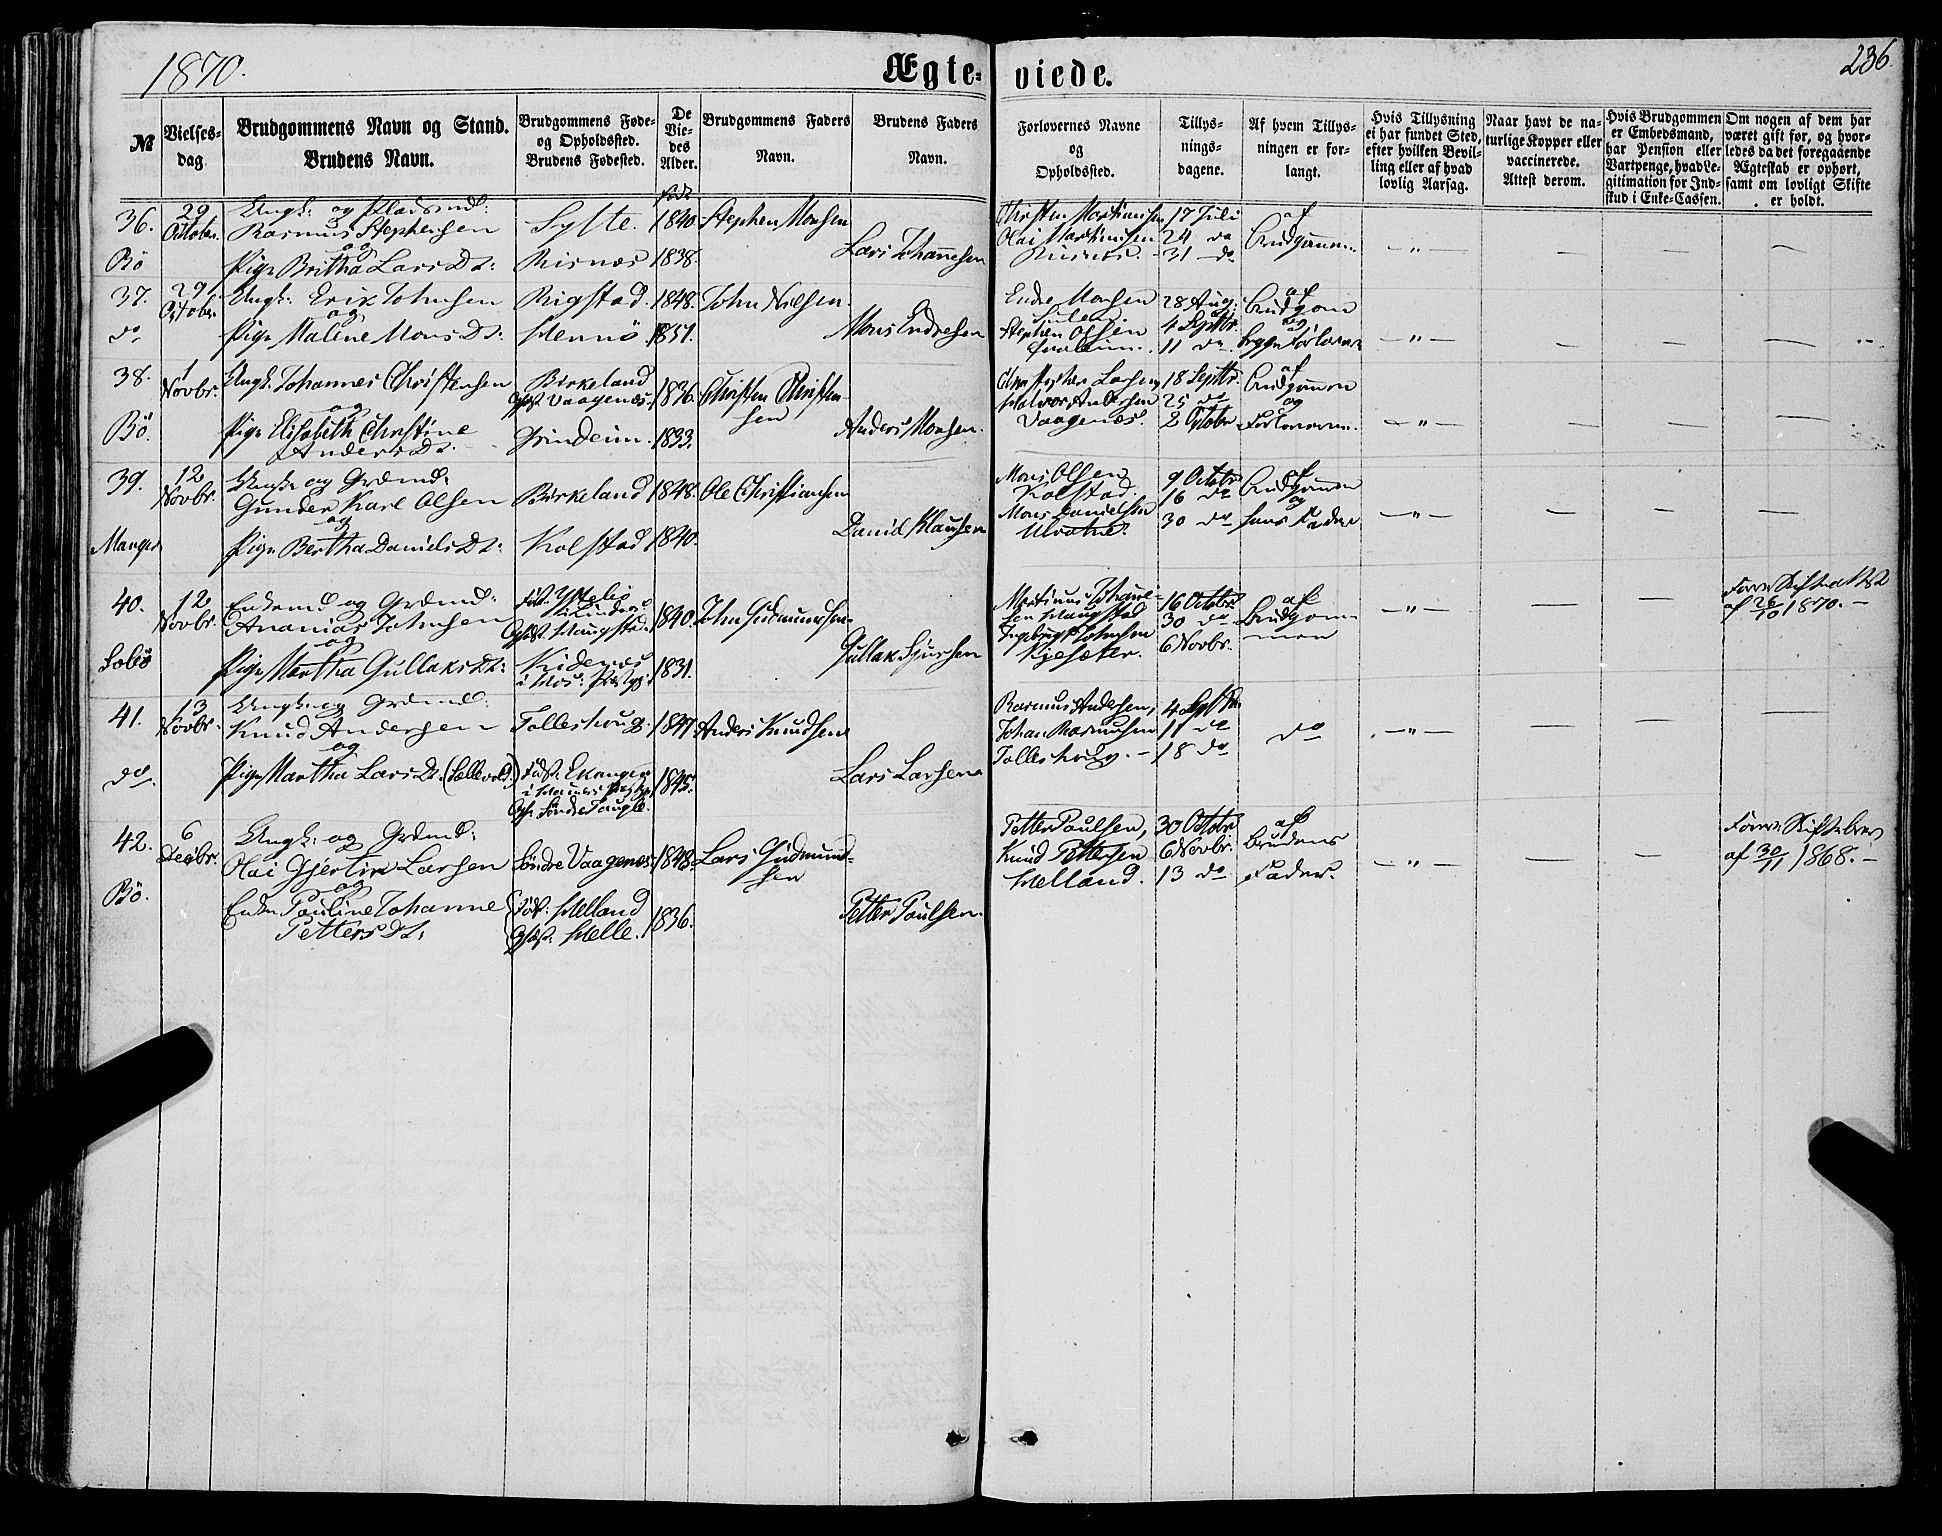 1870.
Ægte-
viede.
236.
№
Vielses-
dag.
Brudgommens Navn og Stand.
Brudens Navn.
Brudgommens Føde-
og Opholdssted.
Brudens Fødested.
De
Vie-
des
Alder.
Brudgommens Faders
Navn.
Brudens Faders
Navn.
Forlovernes Navne
og
Opholdssted.
Tillys-
nings-
dagene.
Af hvem Tillys-
ningen er for-
langt.
Hvis Tillysning
ei har fundet Sted,
efter hvilken Bevil-
ling eller af hvad
lovlig Aarsag.
Naar havt de na-
turlige Kopper eller
vaccinerede.
Attest derom.
Hvis Brudgommen
er Embedsmand,
har Pension eller
Vartpenge, hvad Le-
gitimation for Ind-
skud i Enke-Cassen.
Om nogen af dem har
været gift før, og hvor-
ledes da det foregaaende
Ægteskab er ophørt,
samt om lovligt Skifte
er holdt.
36.
Bö
29
Octobr.
Ungk: og Pladsmd:
Rasmus Stephensen
og
Pige Britha LarsDt:
Sylte.
Risnæs
1840
1838.
Stephen Monsen
Lars Johannesen
Christen Martinusen
Olai Martinusen
Risnes.
17 Juli
24 do
31 do
af
Brudgommen
— " —
37.
do
29
Octobr.
Ungk: Erik Johnsen
og
Pige Malene MonsDt:
Rigstad.
Hennö
1848.
1851.
John Nilsen
Mons Endresen
Endre Monsen
Stephen Olsen
28 Aug:
4 Septbr.
11 do
af
Brudgom
og
begge Forlovere
— " —
38.
Bö.
1
Novbr.
Ungk. Johannes Christensen
og
Pige Elisabeth Christine
AndersDt.
Birkeland
Opst. Vaagenæs.
Grindeim.
1836.
1833.
Christen Christen-
sen
Anders Monsen.
Christopher Larsen
Halvor Andersen
Vaagenæs.
18 Septbr.
25 do
2 Octobr.
af
Brudgommen
og
Forloverne.
— " —
39.
Manger
12
Novbr.
Ungk: og Grdmd:
Gunder Karl Olsen
og
Pige Bertha DanielsDt:
Birkeland
Kolstad
1848.
1840.
Ole Christiansen
Daniel Klausen
Mons Olsen
Kolstad.
Mons Danielsen
Ulvatne.
9 Octobr
16 do
30 do
af
Brudgommen
og
hans Fader
— " —
40.
Solbö
12
Novbr.
Enkemd og Grdmd:
Ananias Johnsen
og
Pige Martha GullaksDt:
Föd. Ystebö
i Lindaas
Opst. Haugstad.
1840.
1831.
John Gudmundsen
Gullak Sjursen
Martinus Johanne-
sen Haugstad
Ingebrigt Johnsen
Kjesæter.
16 Octobr
30 do
6 Novbr.
af
Brudgom-
men
— " —
Forev. Skifteattest
af 26/10 1870. —
41.
do.
13
Novbr.
Ungk: og Grdmd:
Knud Andersen
og
Pige Martha LarsDt. (Sellevold)
Tolleshoug.
Föd: Ekanger
i Hammers Præstgj:
1847
1845.
Anders Knudsen
Lars Larsen
Rasmus Andersen,
Johan Rasmusen
Tolleshoug. —
4 Septbr.
11 do
18 do
do
— " —
42.
Bö.
6
Decbr.
Ungk: og Grdmd:
Olai Gjertin Larsen
og
Enke Pauline Johanne
PettersDt:
Söndre Vaagenæs
Föd: Helland
Opst: Helle.
1848.
1836.
Lars Gudmund-
sen
Petter Paulsen.
Petter Paulsen,
Knud Pettersen
Helland.
30 Octobr
6 Novbr.
13 do
af
Brudens
Fader.
— " —
Forev: Skiftebrev
af 30/11 1868. —